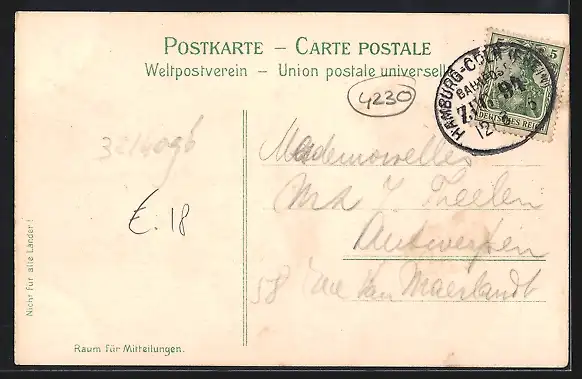 POSTKARTE – CARTE POSTALE
Weltpostverein – Union postale universelle
4230
5 5
HAMBURG-CÖLN
BAHNPOST
ZUG 94
DEUTSCHES REICH
3214096
E. 18
Mademoiselles
Antwerpen
58 Rue Van Maerlandt
Nicht für alle Länder!
Raum für Mitteilungen.